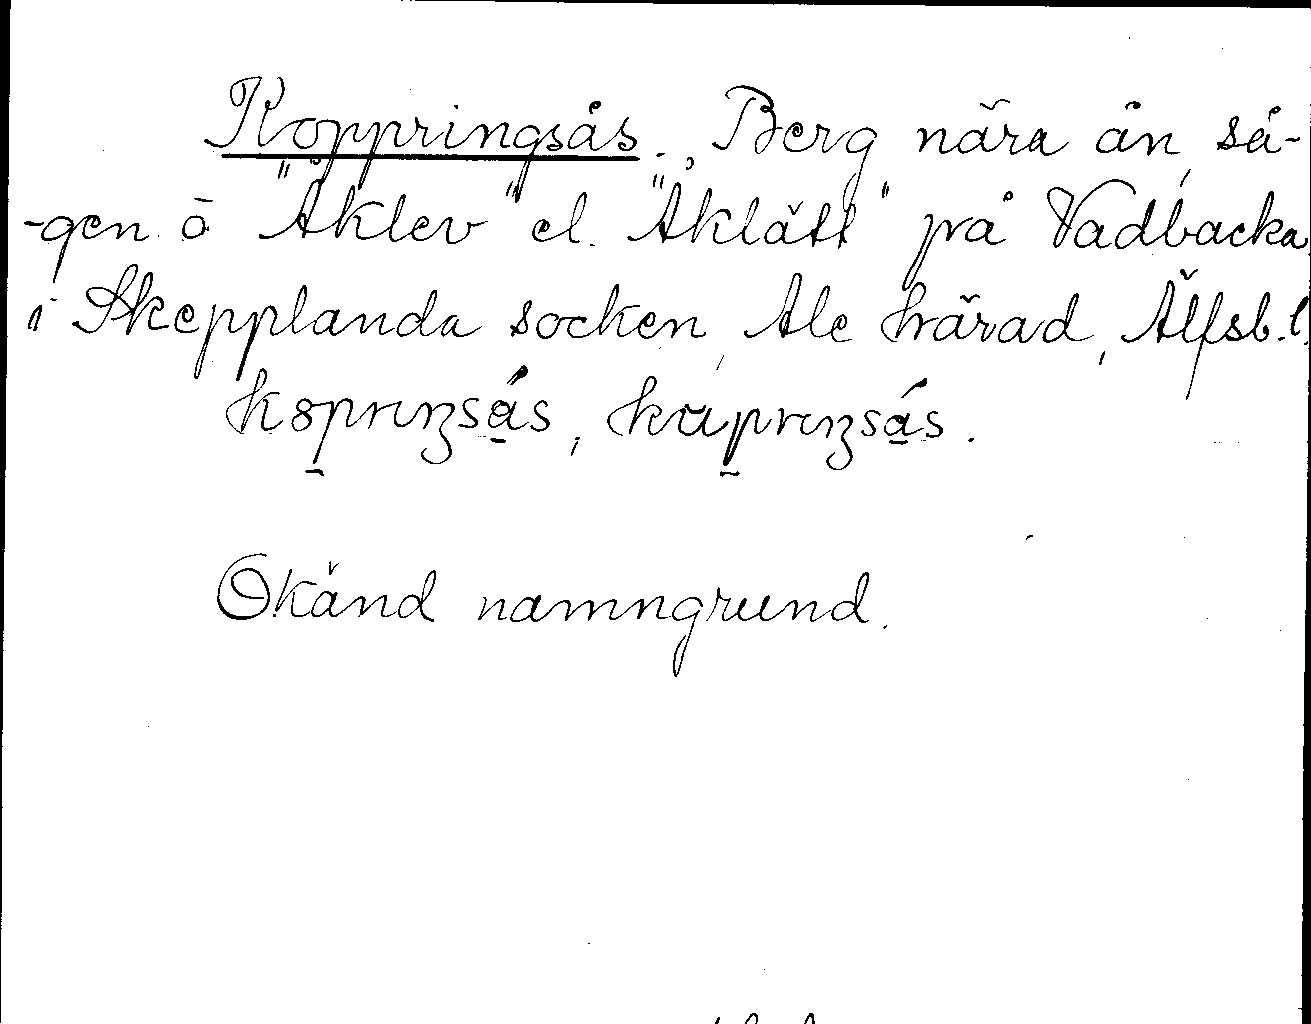 Koppringsås., Berg nära ån, så-
-gen o "Åklev" el. "Åklätt" på Vadbacka
i Skepplanda socken, Ale härad, Älfsb. l.
Okänd namngrund.